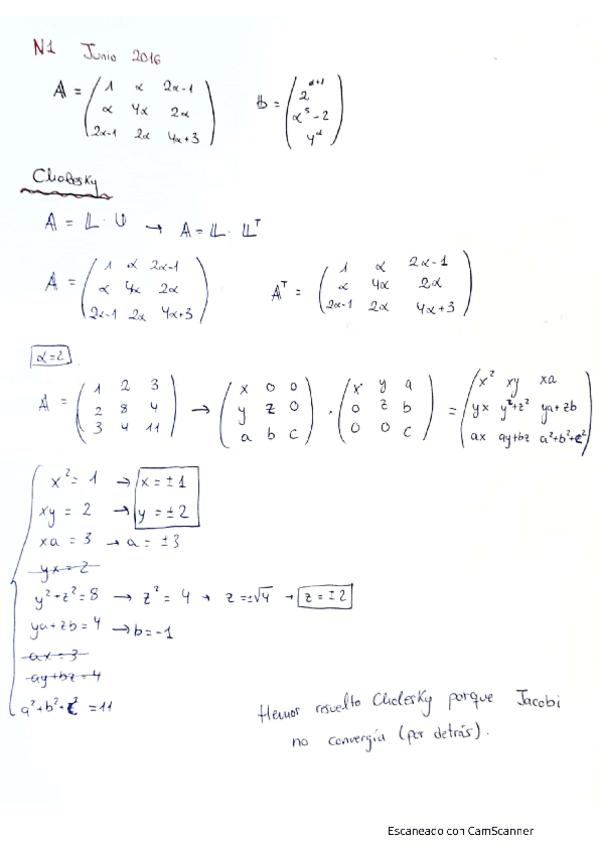 N1 Junio 2016
A = ( 1 α 2α-1 ; α 4α 2α ; 2α-1 2α 4α+3 ) b = ( 2^α+1 ; α^5-2 ; 4^α )
Cholesky
A = L · U → A = L · L^T
A = ( 1 α 2α-1 ; α 4α 2α ; 2α-1 2α 4α+3 ) A^T = ( 1 α 2α-1 ; α 4α 2α ; 2α-1 2α 4α+3 )
α=2
A = ( 1 2 3 ; 2 8 4 ; 3 4 11 ) → ( x 0 0 ; y z 0 ; a b c ) · ( x y a ; 0 z b ; 0 0 c ) = ( x² xy xa ; yx y²+z² ya+zb ; ax ay+bz a²+b²+c² )
x² = 1 → x = ±1
xy = 2 → y = ±2
xa = 3 → a = ±3
yx = 2
y²+z² = 8 → z² = 4 → z = ±√4 → z = ±2
ya+zb = 4 → b = -1
ax = 3
ay+bz = 4
a²+b²+c² = 11
Hemos resuelto Cholesky porque Jacobi
no convergía (por detrás).
Escaneado con CamScanner